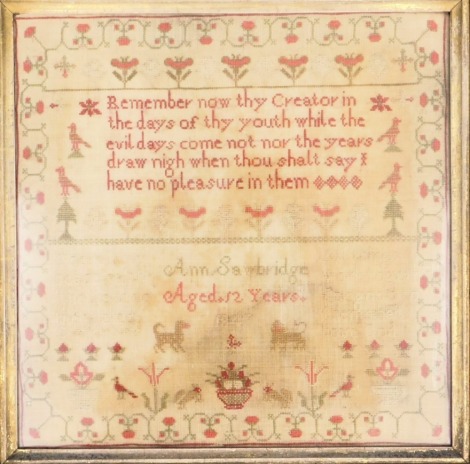 Remember now thy Creator in
the days of thy youth while the
evil days come not nor the years
draw nigh when thou shalt say I
have no pleasure in them
Ann Sawbridge
Aged 12 Years.